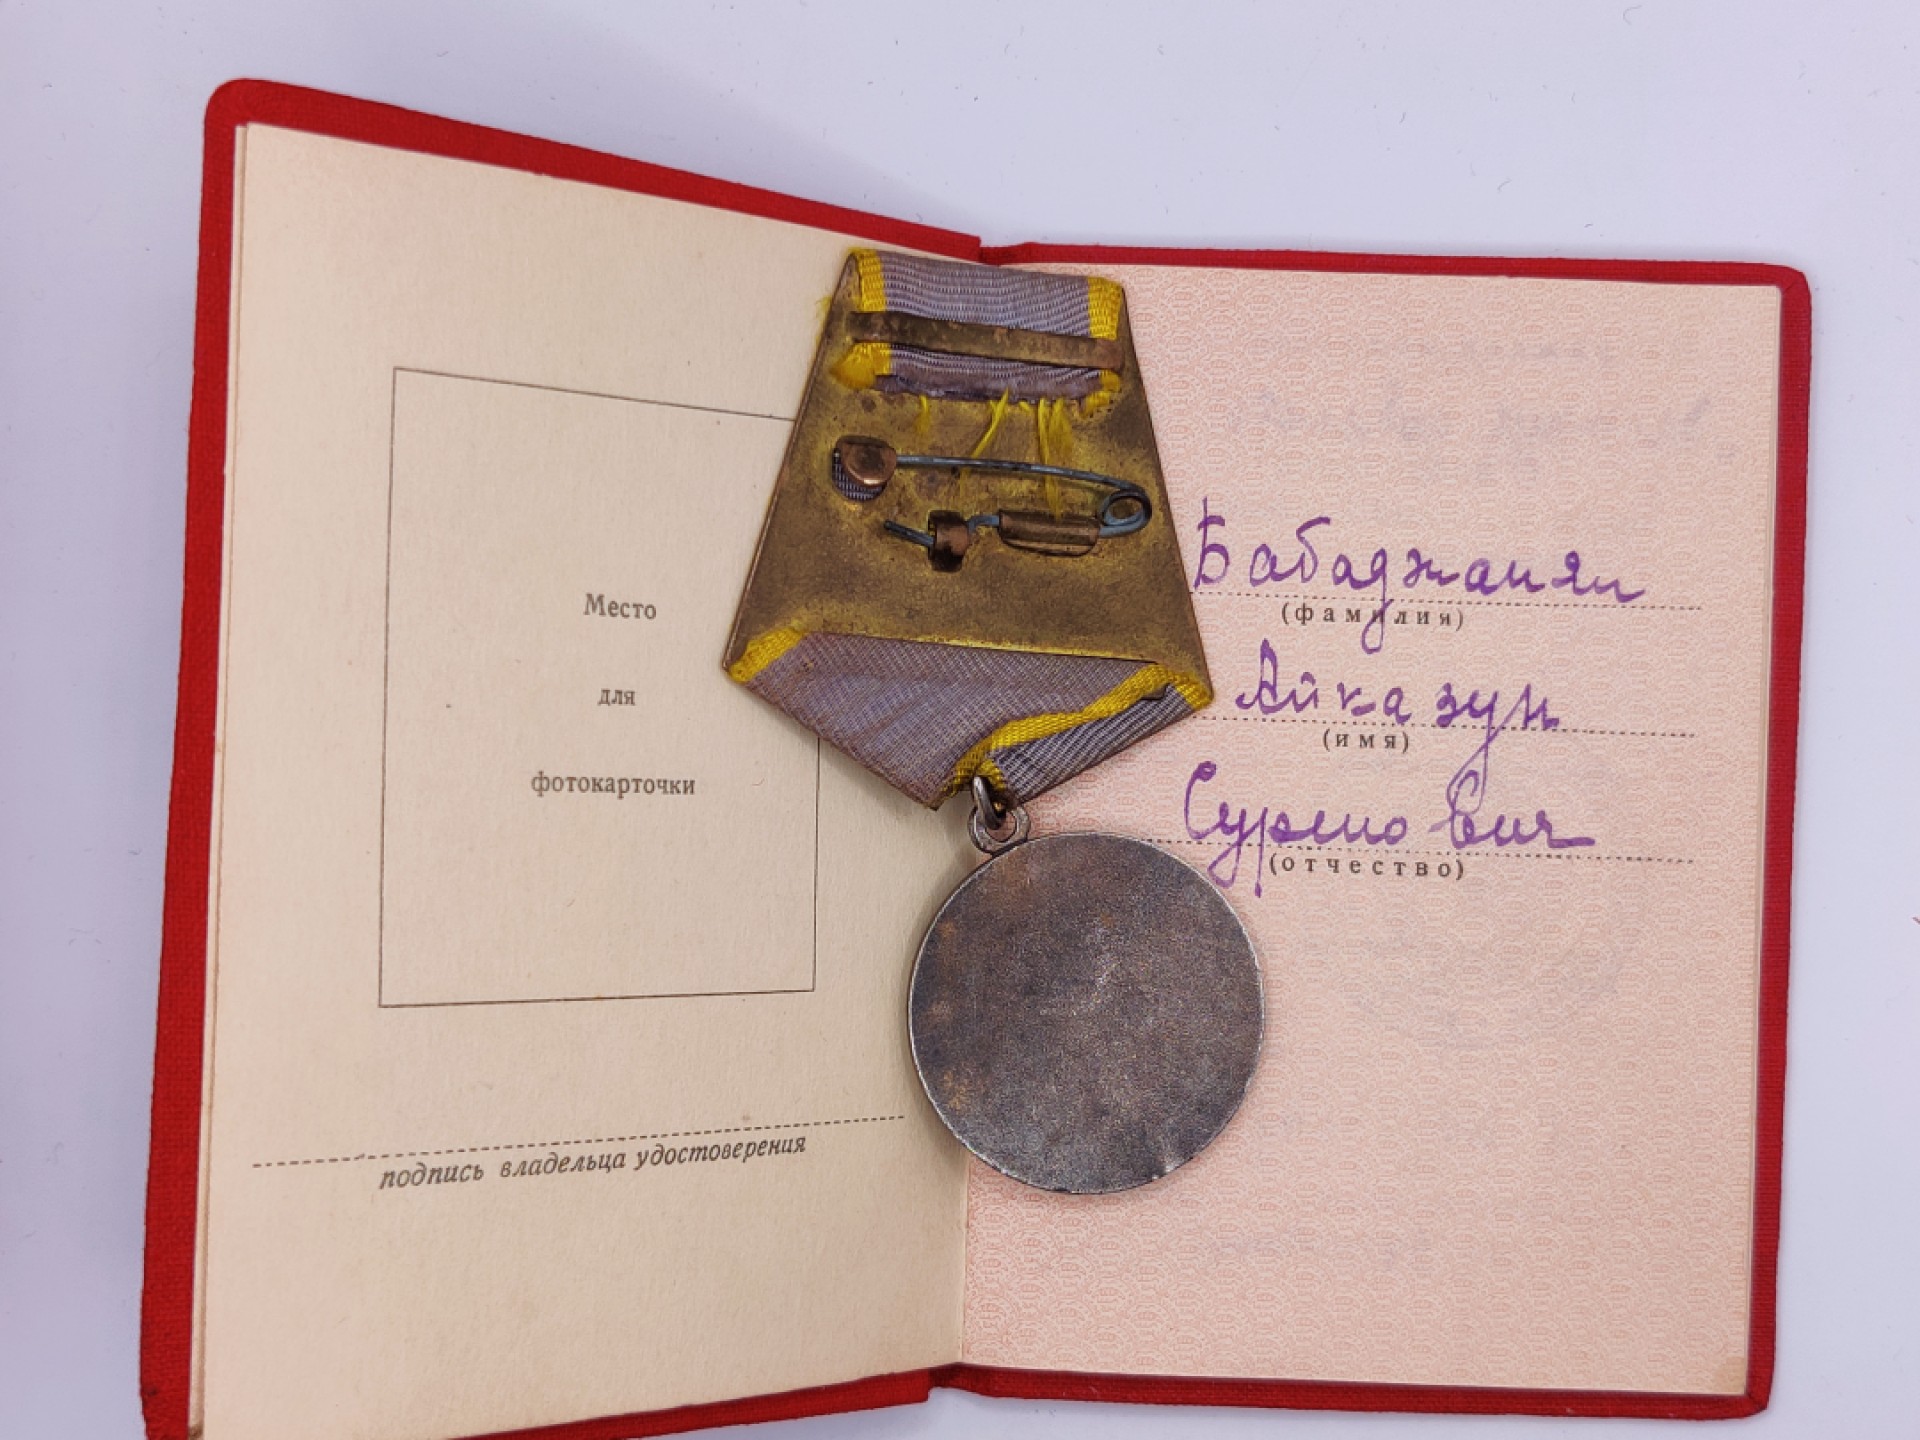 Место
для
фотокарточки
подпись владельца удостоверения
Бабаджанян
(фамилия)
Айказун
(имя)
Суренович
(отчество)